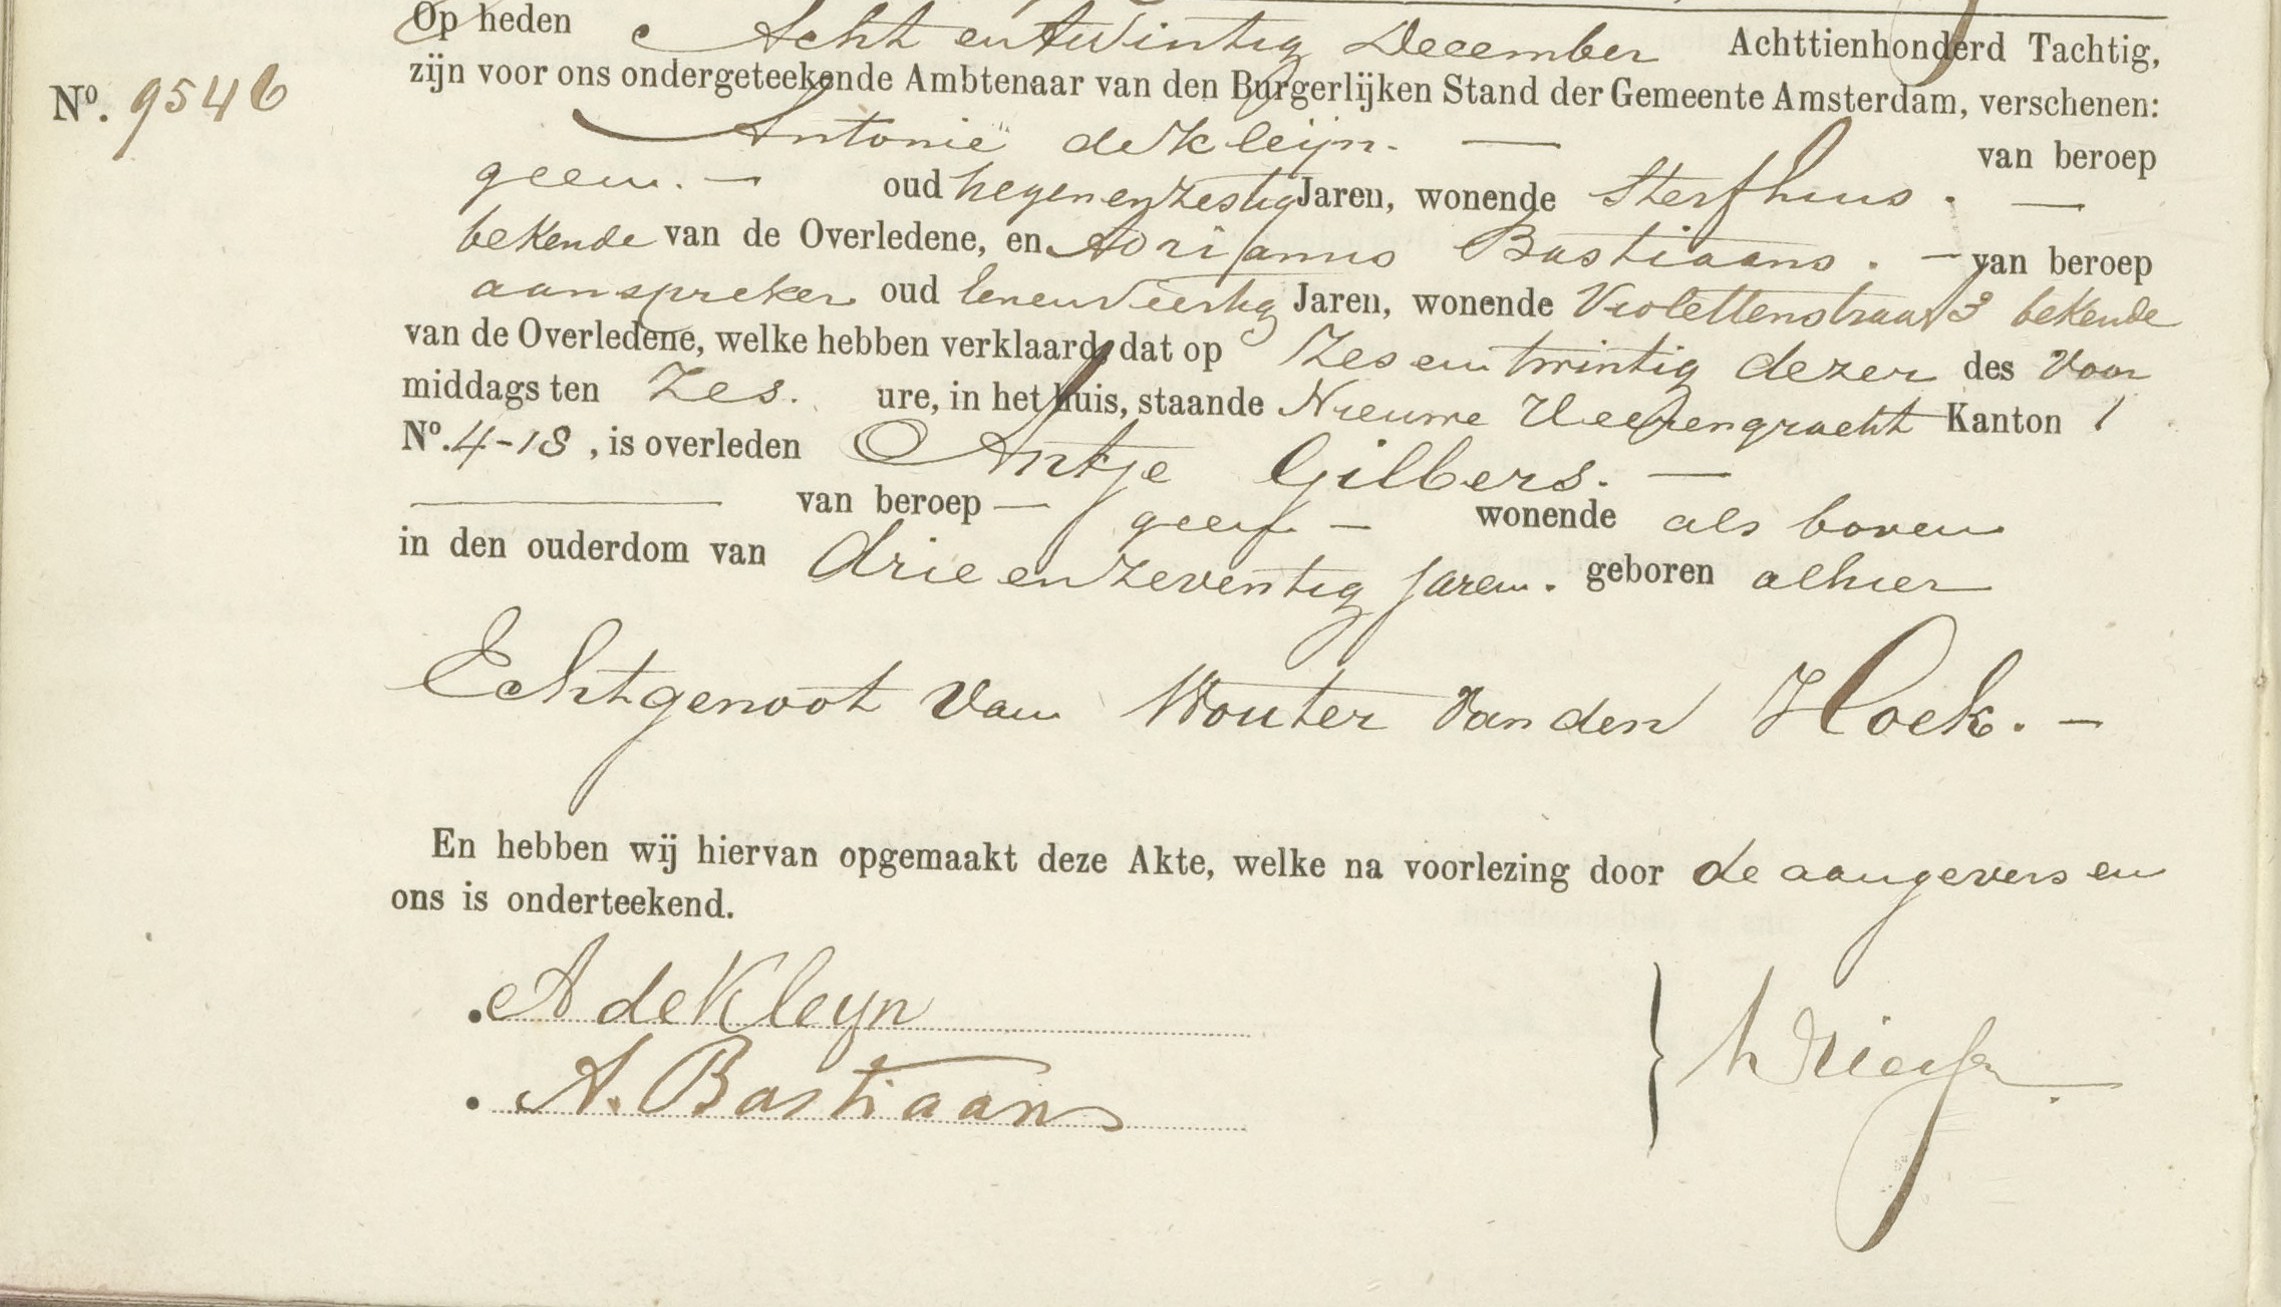 Op heden Acht en twintig December Achttienhonderd Tachtig,
No. 9546
zijn voor ons ondergeteekende Ambtenaar van den Burgerlijken Stand der Gemeente Amsterdam, verschenen:
Antonie de Kleijn. — van beroep
geen. — oud negen en zestig Jaren, wonende Sterfhuis. —
bekende van de Overledene, en Adrianus Bastiaans. — van beroep
aanspreker oud een en veertig Jaren, wonende Violettenstraat 3 bekende
van de Overledene, welke hebben verklaard, dat op Zes en twintig dezer des Voor
middags ten Zes. ure, in het huis, staande Nieuwe Keizengracht Kanton 1
No. 4-18, is overleden Antje Gilbers. —
van beroep — geen — wonende als boven
in den ouderdom van drie en zeventig jaren. geboren alhier
Echtgenoot van Wouter van den Hoek. —
En hebben wij hiervan opgemaakt deze Akte, welke na voorlezing door de aangevers en
ons is onderteekend.
A de Kleyn
A. Bastiaans